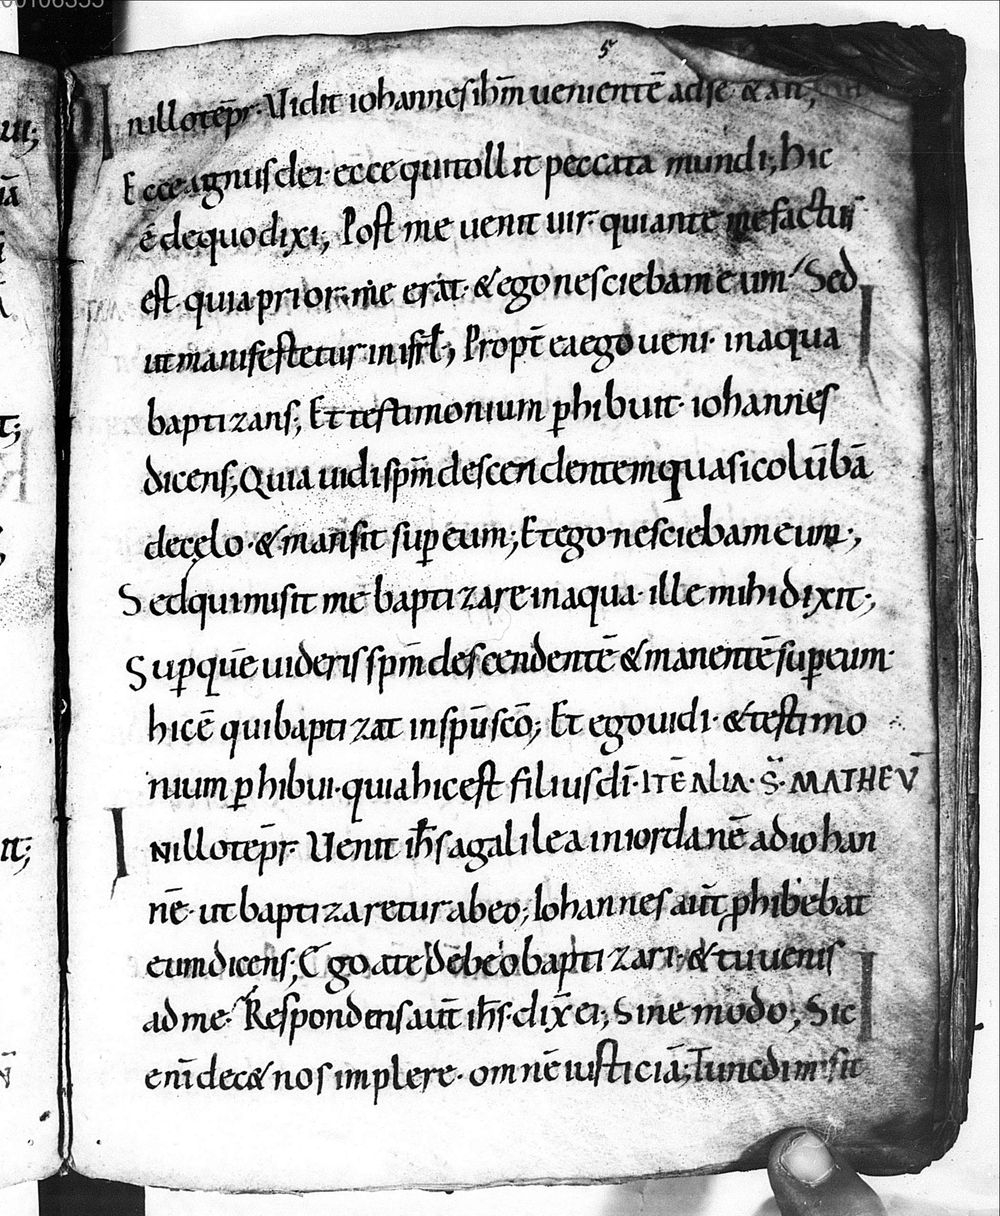 5
Inillotēpr· Uidit iohannes ihm̄ uenientē adse & ait;
Ecce agnus dei· ecce quitollit peccata mundi; hic
ē dequo dixi; Post me uenit uir· quiante me factus
est· quia prior· me erat· & ego nesciebam eum· Sed
ut manifestetur· in isrl̄; Propt̄ ea ego ueni· inaqua
baptizans; Et testimonium phibuit· iohannes
dicens; Quia uidi spm̄ descendentem quasi colūbā
decęlo· & mansit sup eum; Et ego nesciebam eum·;
Sed qui misit me baptizare inaqua· ille mihi dixit·;
Sup quē uideris spm̄ descendentē & manentē sup eum·
hic ē qui baptizat in spū scō; Et ego uidi· & testimo
nium phibui· quia hic est filius dī· ITĒ ALIA· S̄· MATHEV̄
Inillotēpr· Uenit ih̄s agalilea in iordanē ad iohan
nē· ut baptizaretur abeo; Iohannes aut̄ phibebat
eum dicens; Ego ate debeo baptizari· & tu uenis
ad me· Respondens aut̄ ih̄s· dix̄ ei; Sine modo; Sic
enī dec& nos implere· omnē iusticiā; Tunc dimisit